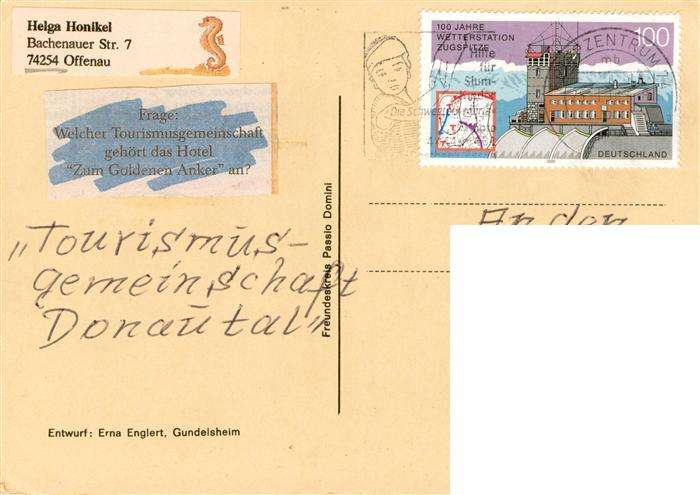 Helga Honikel
Bachenauer Str. 7
74254 Offenau
Frage:
Welcher Tourismusgemeinschaft
gehört das Hotel
"Zum Goldenen Anker" an?
„Tourismus-
gemeinschaft
Donautal"
Entwurf: Erna Englert, Gundelsheim
Freundeskreis Passio Domini
100 JAHRE
WETTERSTATION
ZUGSPITZE
100
DEUTSCHLAND
ZENTRUM
mb
Hilfe
für
Stum-
Die Schwester
An den